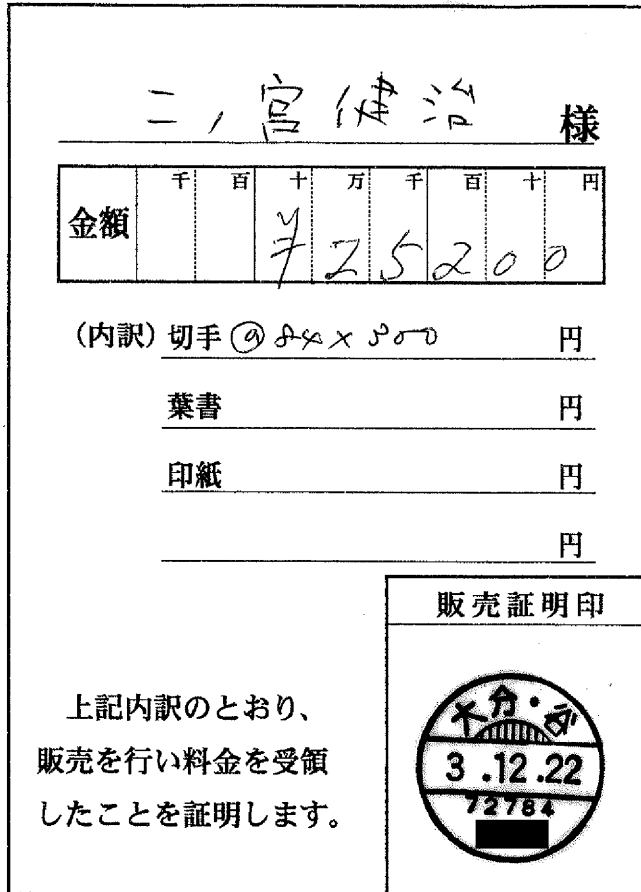 二ノ宮健治 様
金額 千 百 十 万 千 百 十 円
¥25200
(内訳) 切手 @84×300 円
葉書 円
印紙 円
円
販売証明印
上記内訳のとおり、
販売を行い料金を受領
したことを証明します。
大分・谷
3.12.22
72784